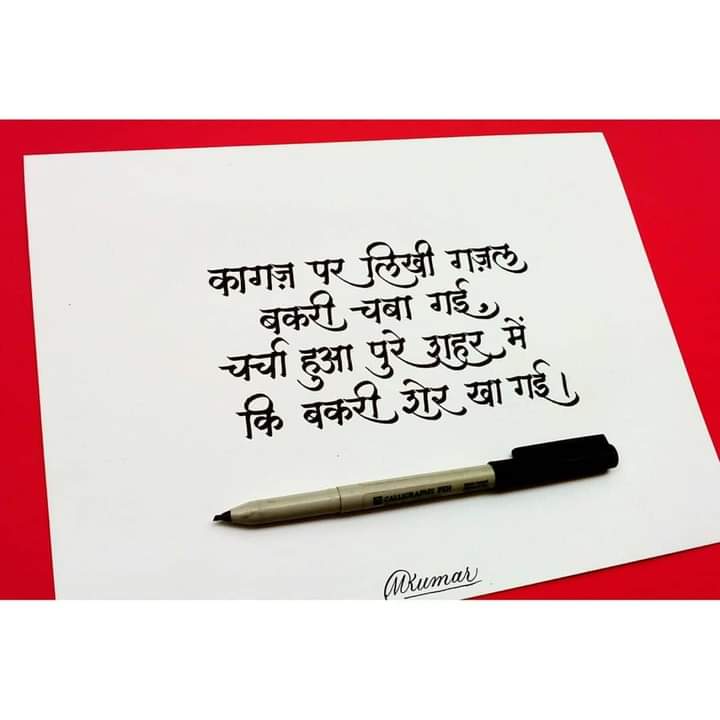 कागज़ पर लिखी गज़ल
बकरी चबा गई,
चर्चा हुआ पुरे शहर में
कि बकरी शेर खा गई।
CALLIGRAPHY PEN
MKumar